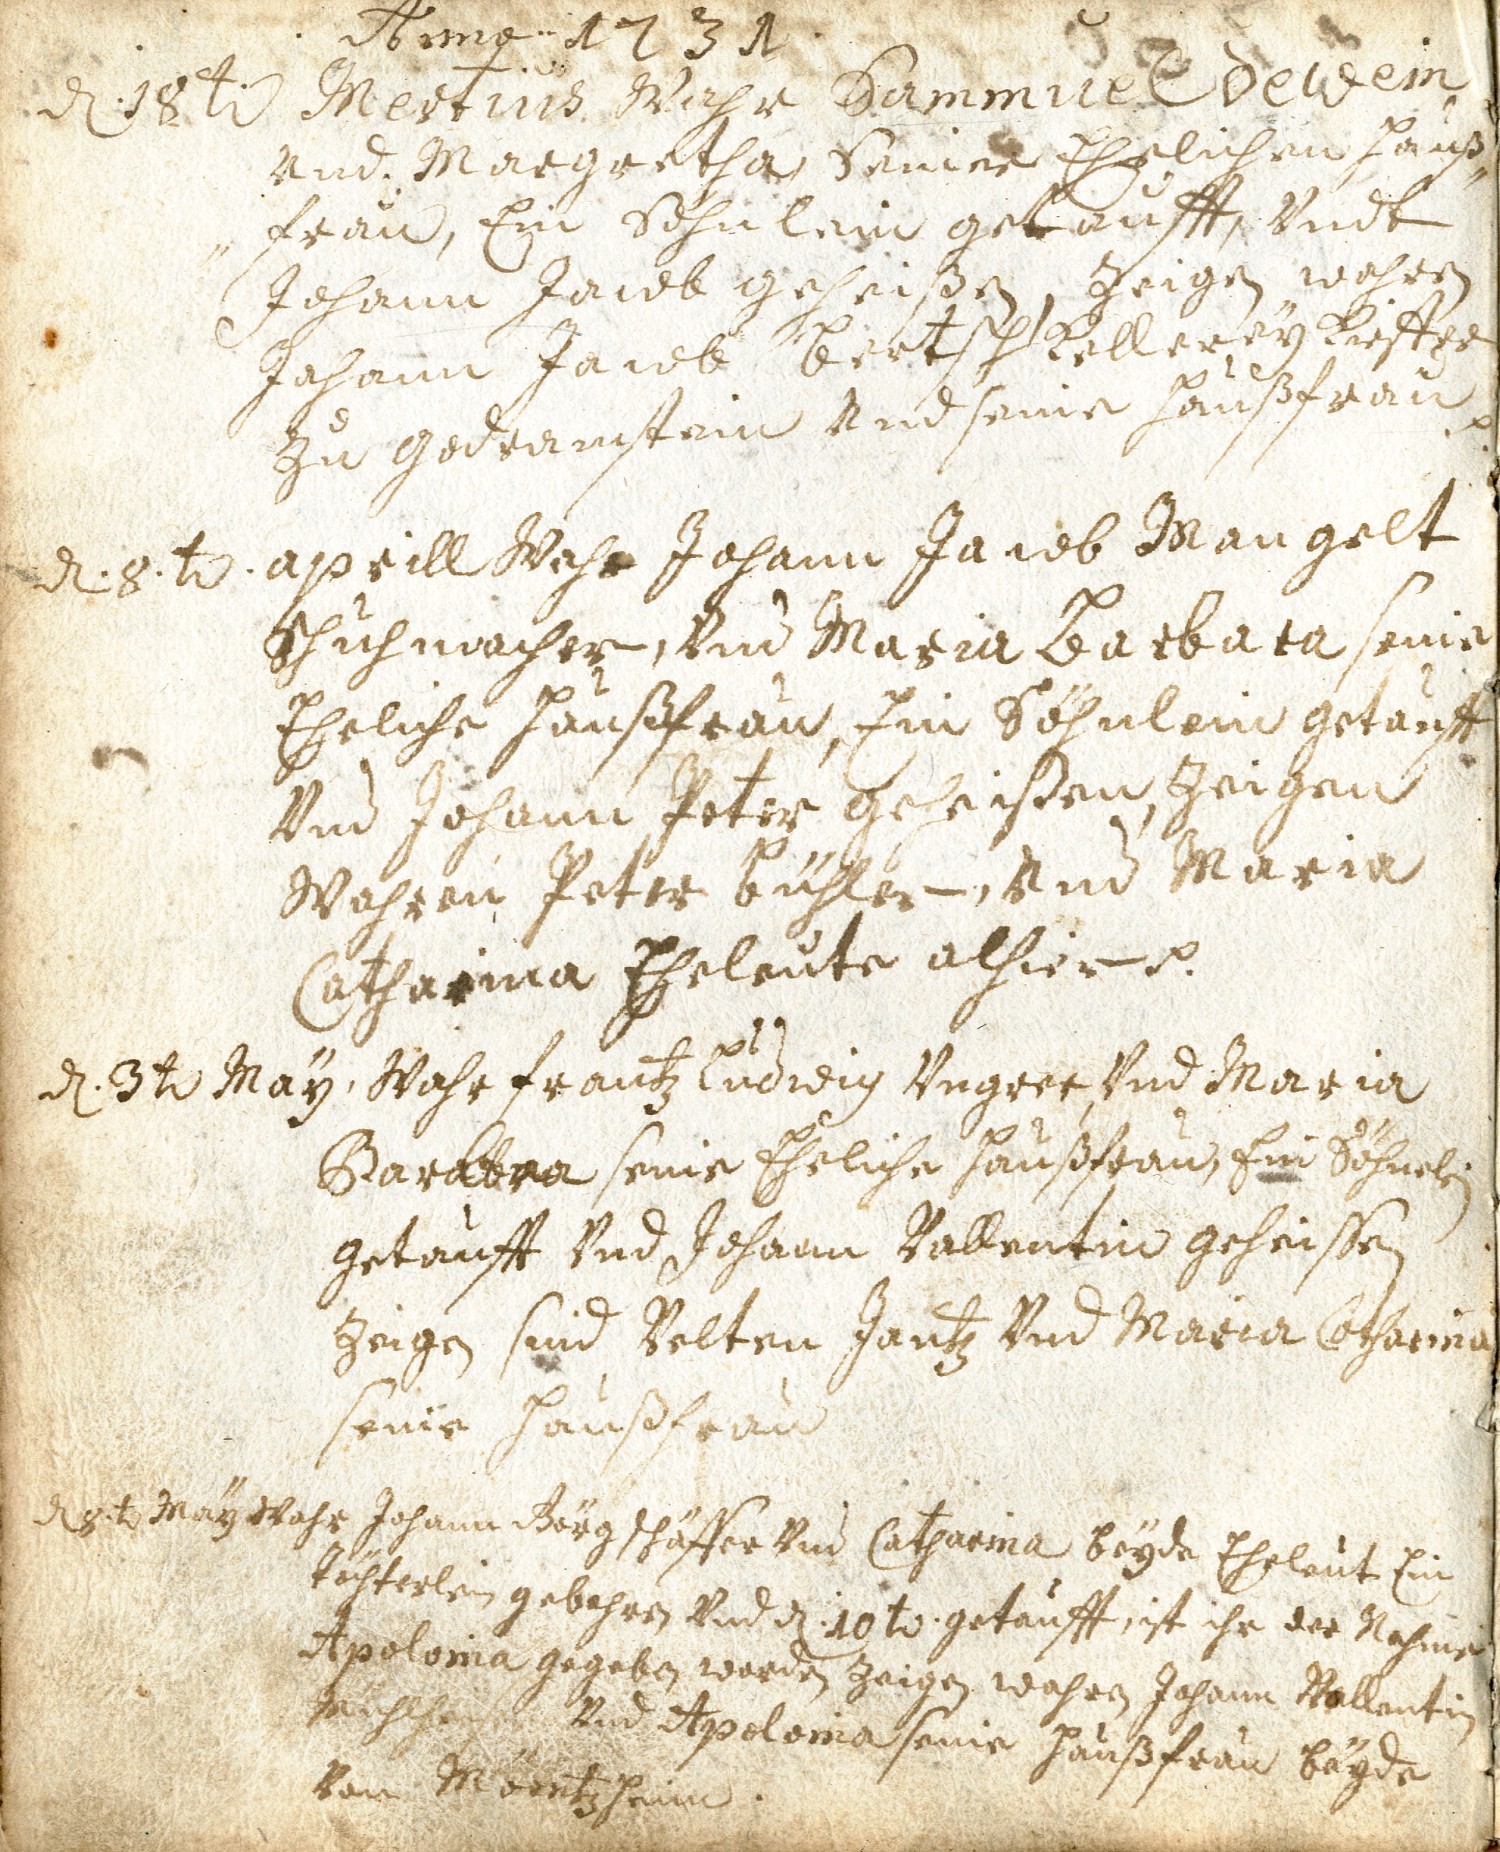 Anno 1731
d. 18t. Mertius Wahr Sammuel Dewein
Und Margretha, Seiner Ehelichen Hauß
frau, Ein Söhnlein getaufft, Undt
Johann Jacob geheißen, Zeigen wahren
Johann Jacob Bertsch Kellereÿ Kieffer
Zu Godramstein und seine Haußfrau
d. 8. t. aprill Wahr Johann Jacob Mangelt
Schuhmacher, Und Maria Barbara seine
Eheliche Haußfrau, Ein Söhnlein getaufft
Und Johann Peter geheißen, Zeigen
Wahren Peter Bühler, Und Maria
Catharina Eheleute alhier
d. 3t Maÿ, Wahr frantz Ludwig Ungrer, Und Maria
Barabra seine Eheliche Haußfrau, Ein Söhnlein
getaufft Und Johann Vallentin geheissen
Zeigen sind Velten Jantz Und Maria Catharina
seine Haußfrau
d 8. t Maÿ Wahr Johann Görg Schäffer Und Catharina beÿde Eheleut Ein
Töchterlein gebohren Und d. 10 t. getaufft, ist ihr der Nahme
Apolonia gegeben worden Zeigen wahren Johann Vallentin
Und Apolonia seine Haußfrau beÿde
Von Mörtzheim.